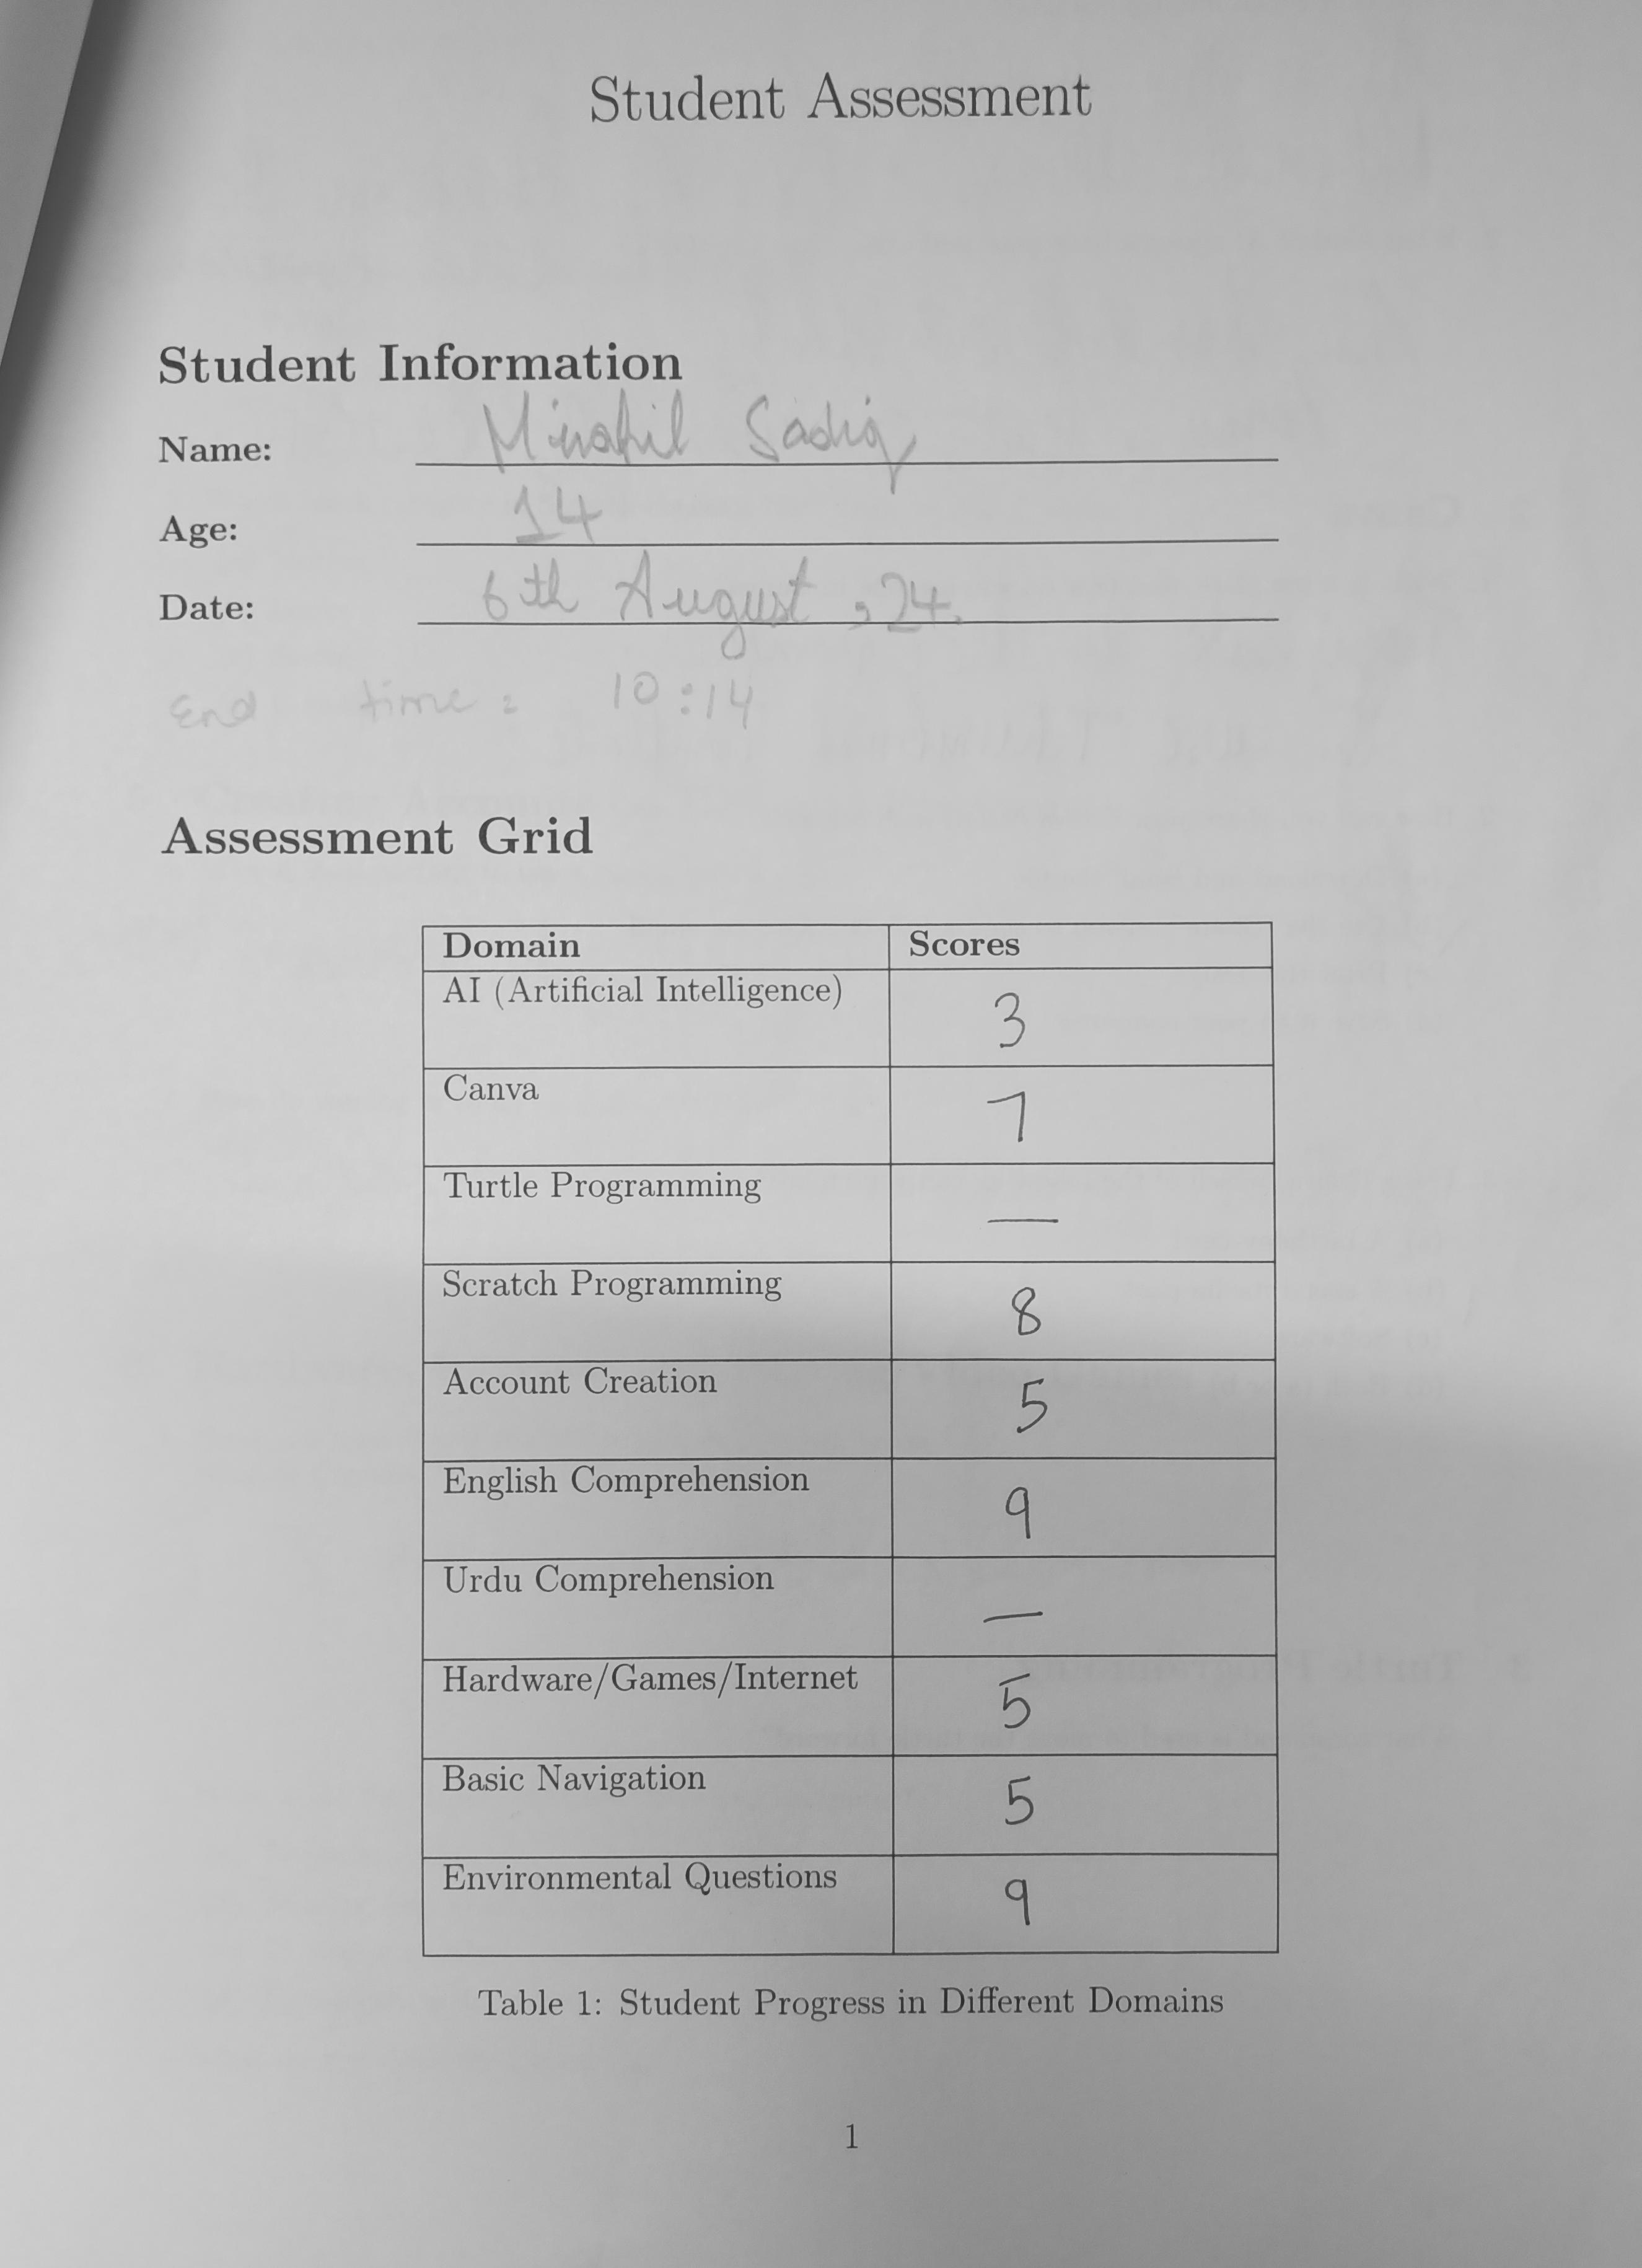 Student Assessment
Student Information
Name: Minahil Sadiq
Age: 14
Date: 6th August, 24.
End time: 10:14
Assessment Grid
Domain Scores
AI (Artificial Intelligence) 3
Canva 7
Turtle Programming —
Scratch Programming 8
Account Creation 5
English Comprehension 9
Urdu Comprehension —
Hardware/Games/Internet 5
Basic Navigation 5
Environmental Questions 9
Table 1: Student Progress in Different Domains
1